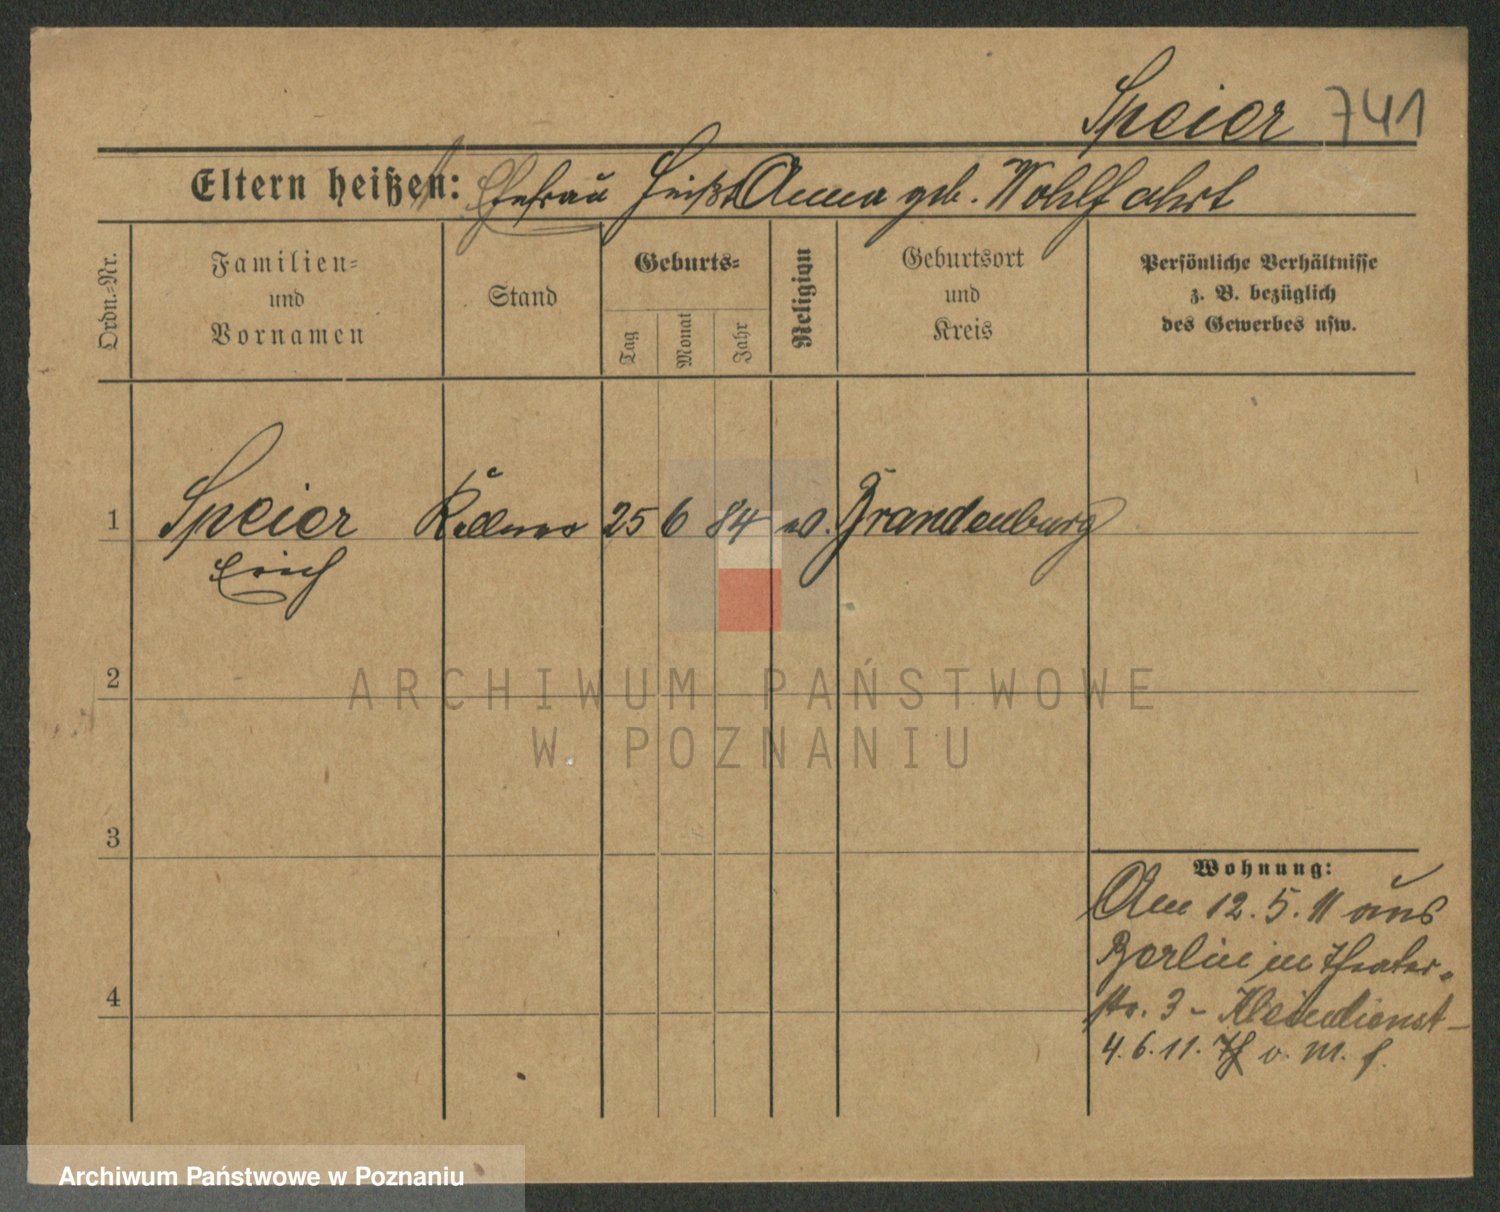 Speier 741
Eltern heißen: Ehefrau heißt Anna geb. Wohlfahrt
Ordn.-Nr.
Familien-
und
Vornamen
Stand
Geburts-
Tag
Monat
Jahr
Religion
Geburtsort
und
Kreis
Persönliche Verhältnisse
z. B. bezüglich
des Gewerbes usw.
1 Speier Kellner 25 6 84 Brandenburg
Erich
2
ARCHIWUM PAŃSTWOWE
W POZNANIU
3
Wohnung:
Am 12.5.11 aus
Berlin in Theater-
str. 3 -
4
4.6.11. v. M.
Archiwum Państwowe w Poznaniu